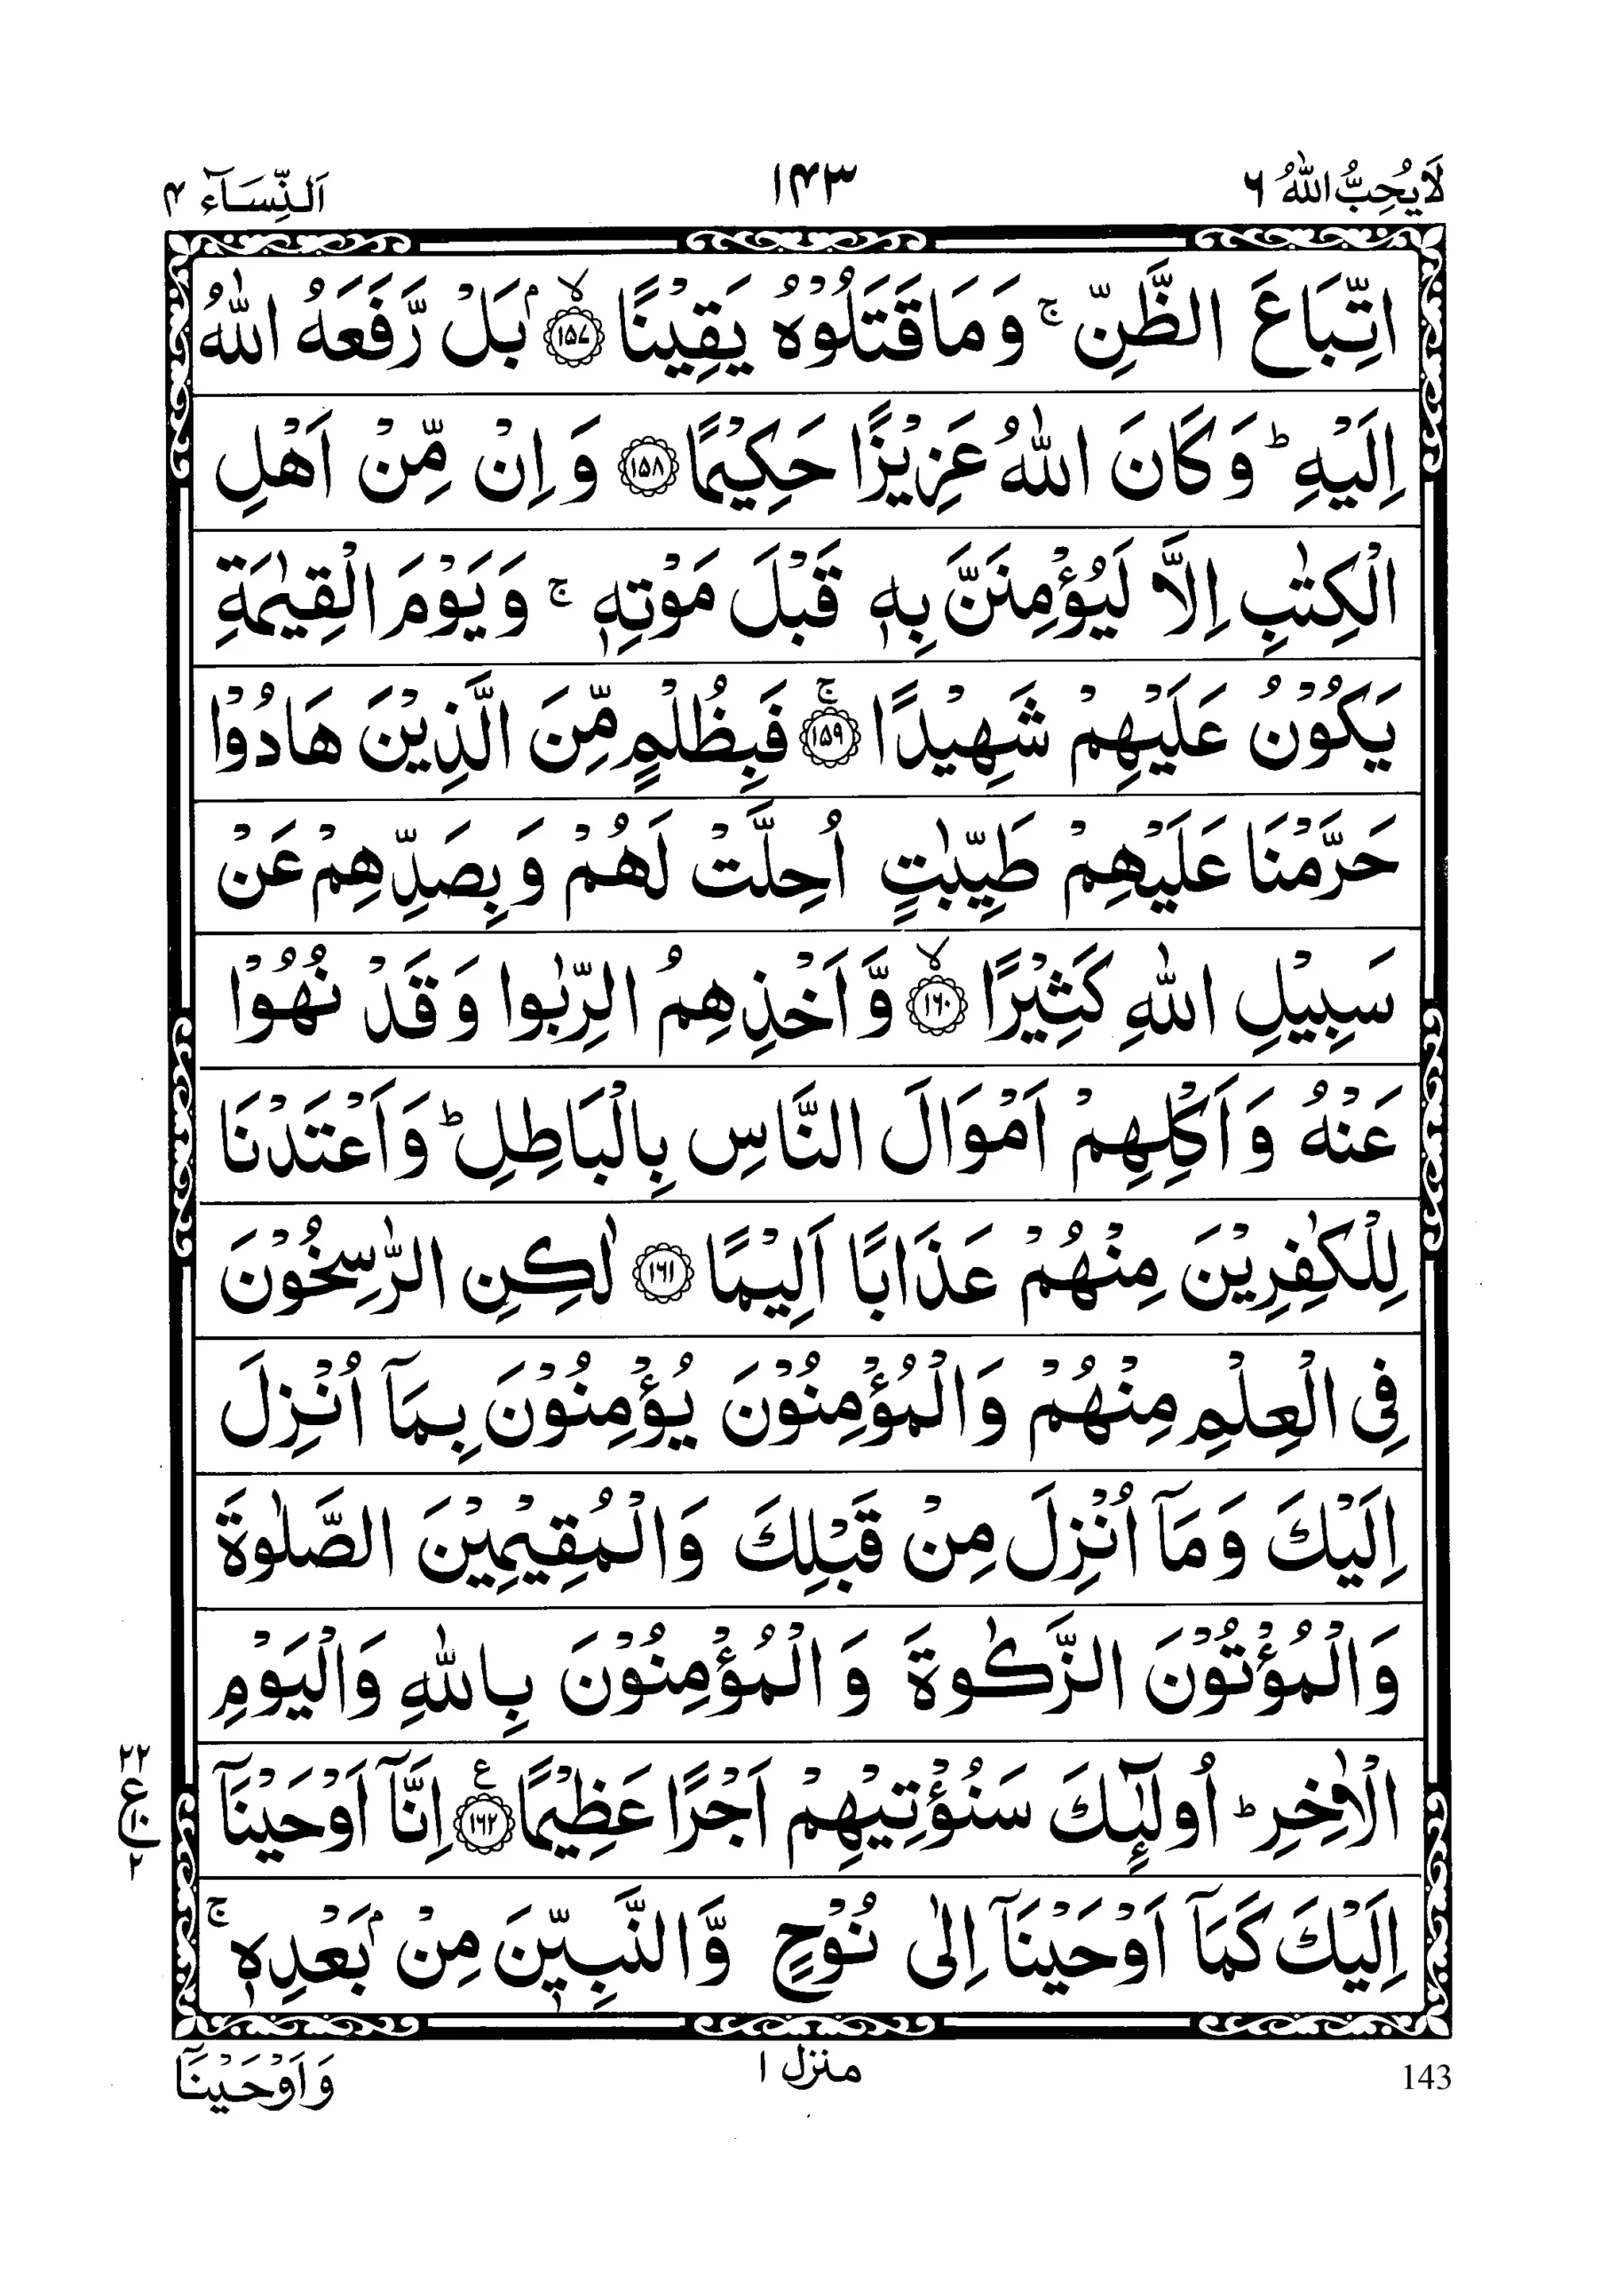 لَا يُحِبُّ اللّٰهُ ٦ ١۴٣ اَلنِّسَآء ۴
اتِّبَاعَ الظَّنِّ ۚ وَمَا قَتَلُوْهُ يَقِيْنًۢا ۙ﴿١٥٧﴾ بَلْ رَّفَعَهُ اللّٰهُ
اِلَيْهِ ؕ وَكَانَ اللّٰهُ عَزِيْزًا حَكِيْمًا ﴿١٥٨﴾ وَاِنْ مِّنْ اَهْلِ
الْكِتٰبِ اِلَّا لَيُؤْمِنَنَّ بِهٖ قَبْلَ مَوْتِهٖ ۚ وَيَوْمَ الْقِيٰمَةِ
يَكُوْنُ عَلَيْهِمْ شَهِيْدًا ۚ﴿١٥٩﴾ فَبِظُلْمٍ مِّنَ الَّذِيْنَ هَادُوْا
حَرَّمْنَا عَلَيْهِمْ طَيِّبٰتٍ اُحِلَّتْ لَهُمْ وَبِصَدِّهِمْ عَنْ
سَبِيْلِ اللّٰهِ كَثِيْرًا ۙ﴿١٦٠﴾ وَّاَخْذِهِمُ الرِّبٰوا وَقَدْ نُهُوْا
عَنْهُ وَاَكْلِهِمْ اَمْوَالَ النَّاسِ بِالْبَاطِلِ ؕ وَاَعْتَدْنَا
لِلْكٰفِرِيْنَ مِنْهُمْ عَذَابًا اَلِيْمًا ﴿١٦١﴾ لٰكِنِ الرّٰسِخُوْنَ
فِى الْعِلْمِ مِنْهُمْ وَالْمُؤْمِنُوْنَ يُؤْمِنُوْنَ بِمَآ اُنْزِلَ
اِلَيْكَ وَمَآ اُنْزِلَ مِنْ قَبْلِكَ وَالْمُقِيْمِيْنَ الصَّلٰوةَ
وَالْمُؤْتُوْنَ الزَّكٰوةَ وَالْمُؤْمِنُوْنَ بِاللّٰهِ وَالْيَوْمِ
الْاٰخِرِ ؕ اُولٰٓئِكَ سَنُؤْتِيْهِمْ اَجْرًا عَظِيْمًا ﴿١٦٢﴾ ع اِنَّآ اَوْحَيْنَآ
٢٢
ع
٢
اِلَيْكَ كَمَآ اَوْحَيْنَآ اِلٰى نُوْحٍ وَّالنَّبِيّٖنَ مِنْۢ بَعْدِهٖ ۚ
وَاَوْحَيْنَآ
منزل ١
143